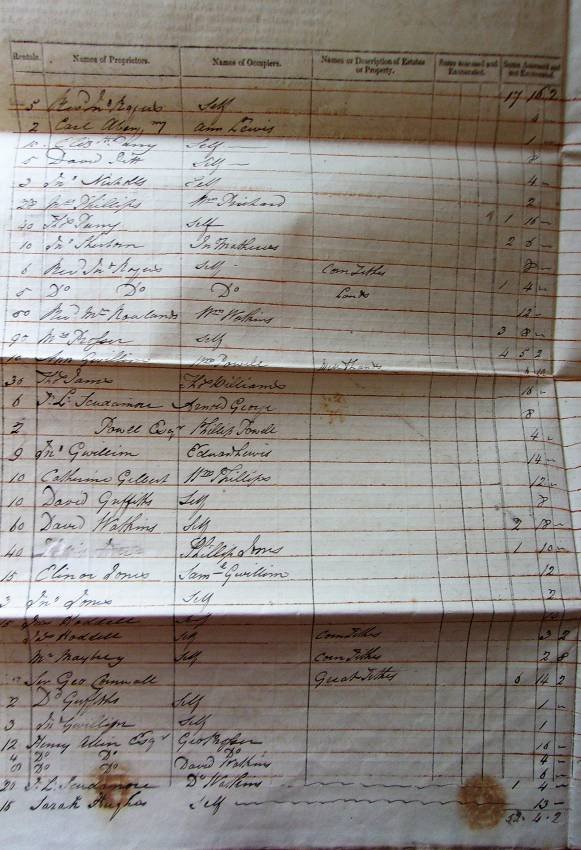 Rentals. Names of Proprietors. Names of Occupiers. Names or Description of Estates or Property. Sums assessed and Exonerated. Sums Assessed and not Exonerated.
17 16 2
5 Revd Jno Rogers Self 4 -
2 Earl Aberg,ny Ann Lewis 1 -
10 Elizth Parry Self 8
5 David Pitt Self 4 -
3 Jno Nicholls Self 2
Mrs Phillips Wm Prichard 1 16 -
40 Thos Parry Self 2 6 -
10 Jno Jno Mathews 8 -
6 Revd Jno Rogers Self Corn Tithes 1 4 -
5 Do Do Do Lands 12 -
80 Revd Mr Rowlands Wm Watkins 3 8 -
90 Mrs Prosser Self 4 5 2
10 Ann Gwillim Wm Powell
30 Thos James Thos Williams 16 -
6 J. L. Scudamore Arnold George 8
2 Powell Esqr Phillip Powell 4 -
9 Jno Gwillim Edwd Lewis 14 -
10 Catherine Gilbert Wm Phillips 12 -
10 David Griffiths Self 8
60 David Watkins Self 2 8 -
40 Phillip Jones 1 10 -
15 Elinor Jones Saml Gwillim 12
3 Jno Jones Self 2
15 Hoddell Self
Hoddell Self Corn Tithes 3 2
Mr Maybery Self Corn Tithes 2 8
Sir Geo Cornwall Great Tithes 6 14 2
2 Do Griffiths Self 1 -
3 Jno Gwillim Self 1
12 Henry Allen Esqr Geo Prosser 16 -
4 Do Do Do 4 -
Do Do David Watkins 6 -
20 J. L. Scudamore Do Watkins 1 4 -
15 Sarah Hughes Self 13 -
52 . 4 . 2